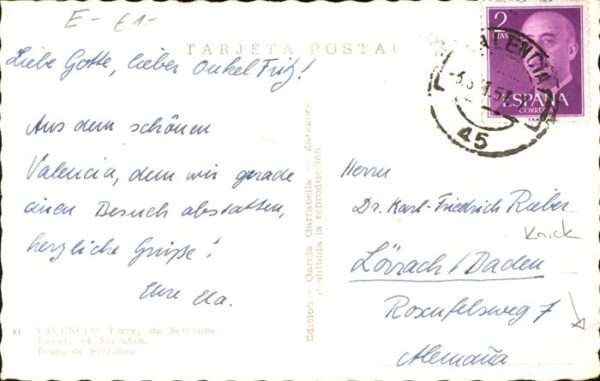 E- €1-
TARJETA POSTAL
Liebe Gotte, lieber Onkel Fritz!
Aus dem schönen
Valencia, dem wir gerade
einen Besuch abstatten,
herzliche Grüße!
Eure
41 VALENCIA: Torre de Serranos
Tower of Serranos
Tour de Serranos
Edición García Garrabella - Zaragoza
prohibida la reproducción
2
PTAS
ESPAÑA
CORREOS
VALENCIA
45
Herrn
Dr. Karl-Friedrich Rieber
Knick
Lörrach / Baden
Rosenfelsweg 7
Alemaña